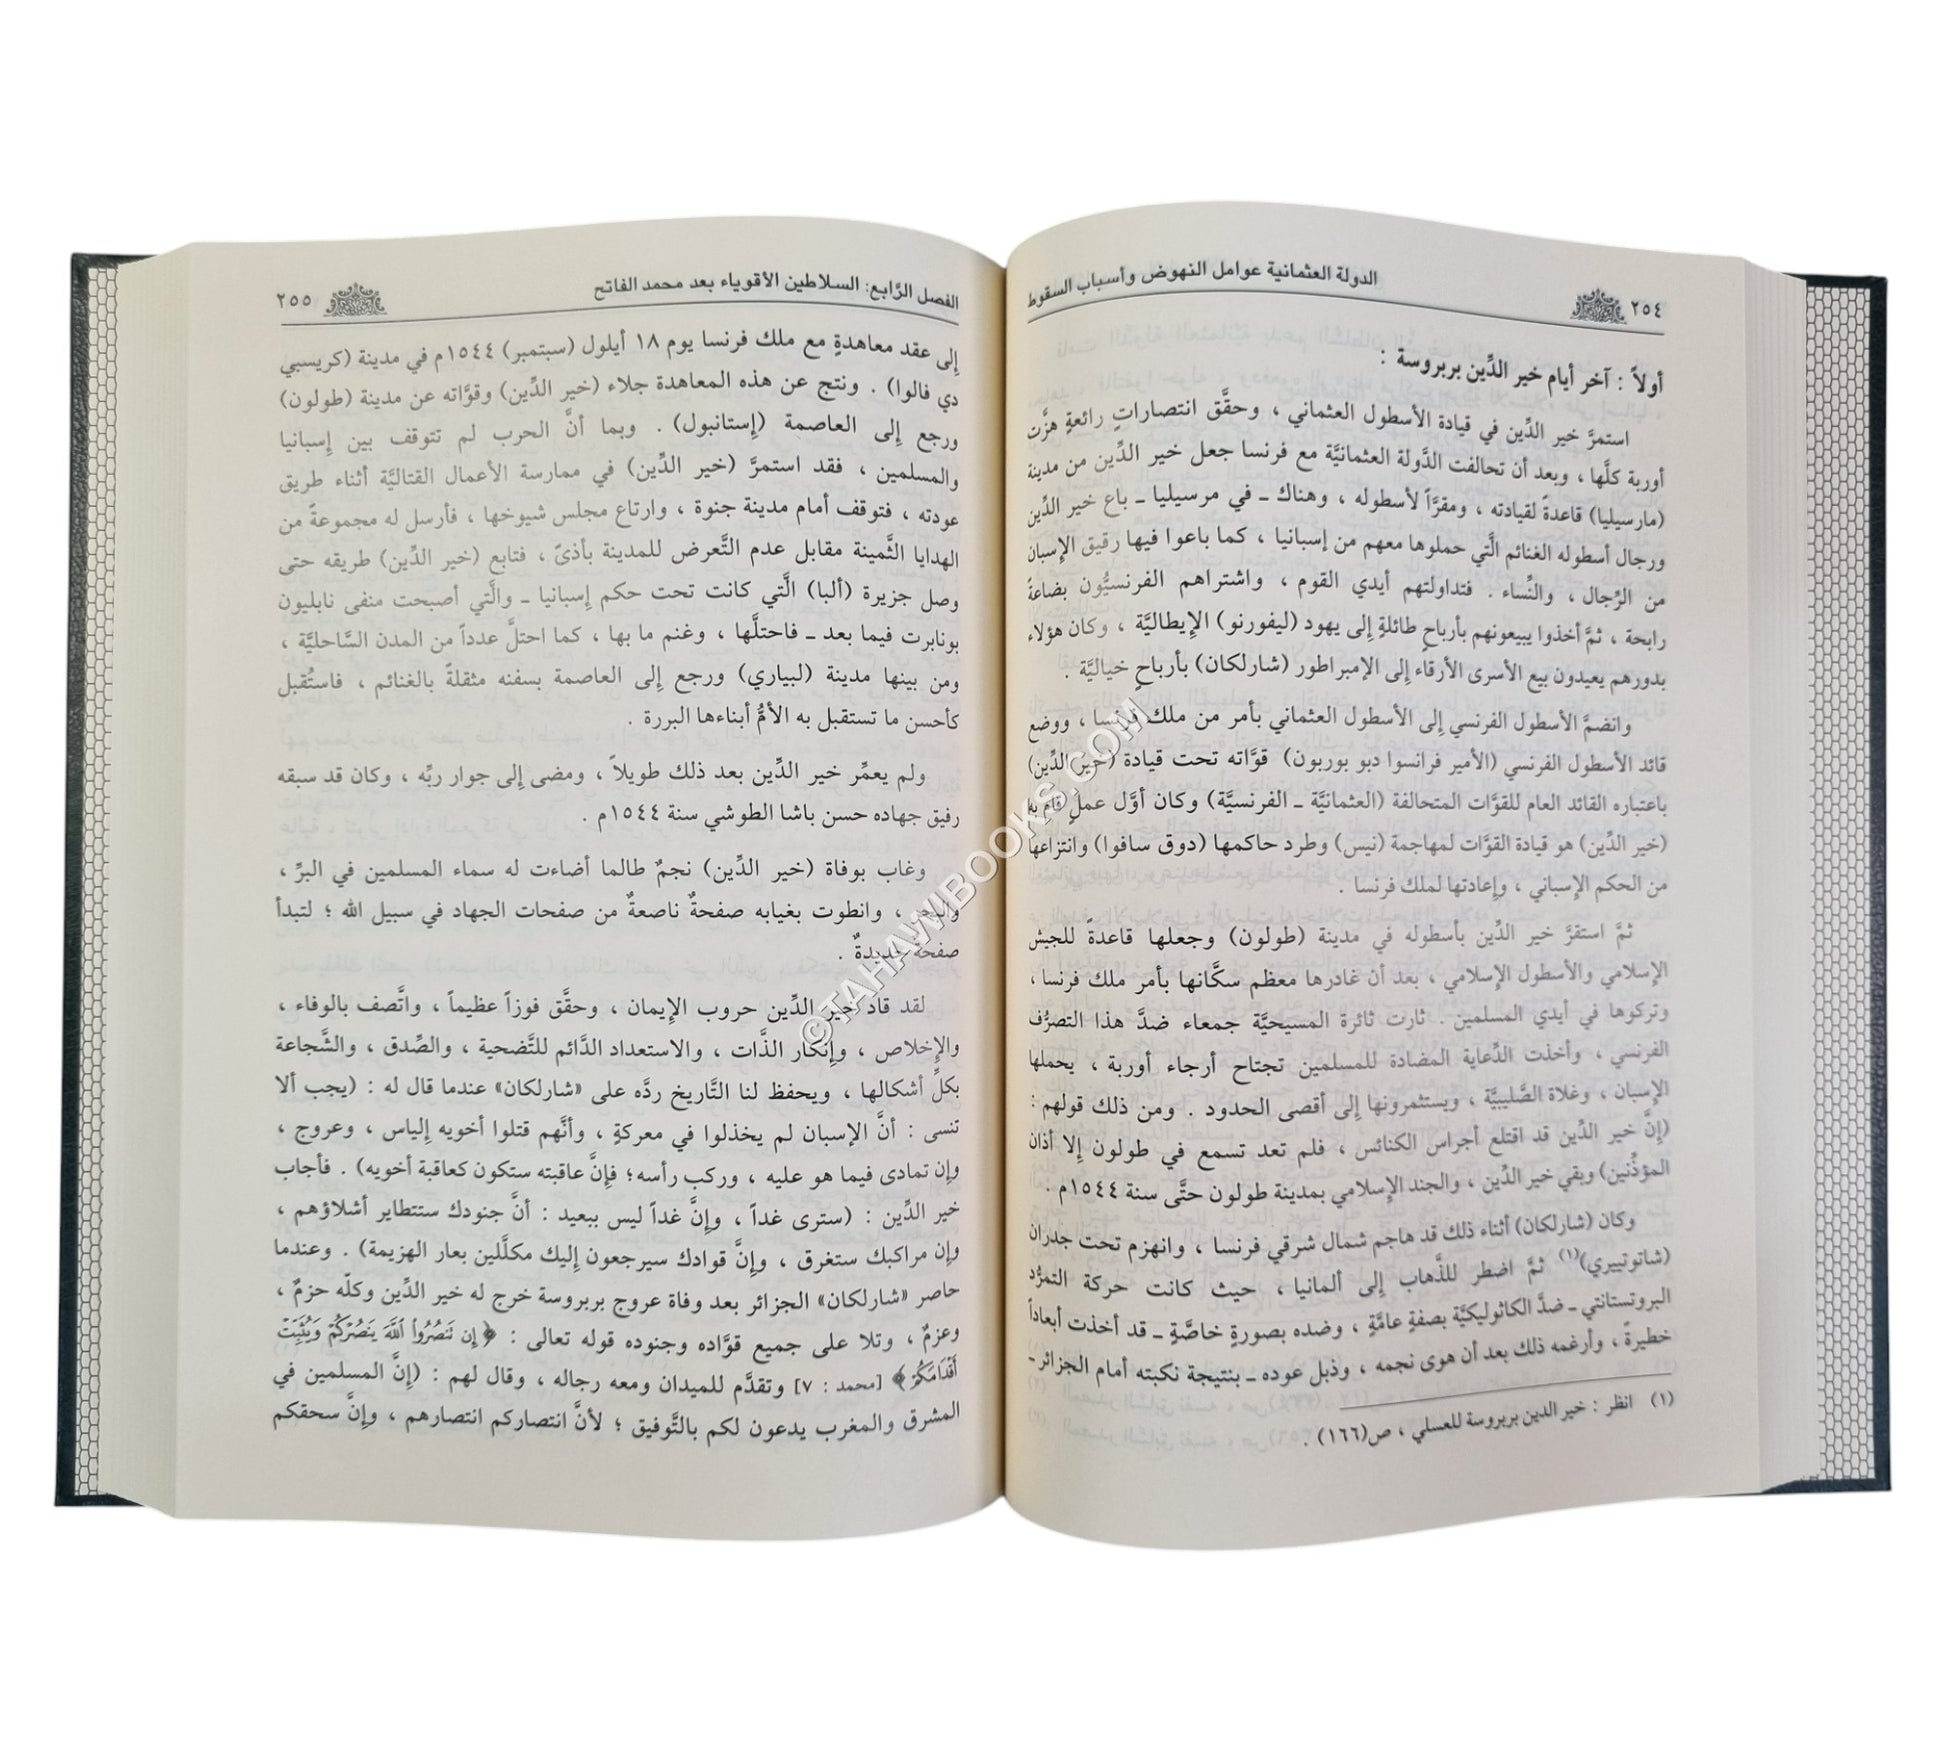 ٢٥٤ الدولة العثمانية عوامل النهوض وأسباب السقوط
أولاً : آخر أيام خير الدِّين بربروسة :
استمرَّ خير الدِّين في قيادة الأسطول العثماني ، وحقَّق انتصاراتٍ رائعةٍ هزَّت
أوربة كلَّها ، وبعد أن تحالفت الدَّولة العثمانيَّة مع فرنسا جعل خير الدِّين من مدينة
(مارسيليا) قاعدةً لقيادته ، ومقرَّاً لأسطوله ، وهناك ـ في مرسيليا ـ باع خير الدِّين
ورجال أسطوله الغنائم الَّتي حملوها معهم من إسبانيا ، كما باعوا فيها رقيق الإِسبان
من الرِّجال ، والنِّساء . فتداولتهم أيدي القوم ، واشتراهم الفرنسيُّون بضاعةً
رابحة ، ثمَّ أخذوا يبيعونهم بأرباحٍ طائلةٍ إلى يهود (ليفورنو) الإِيطاليَّة ، وكان هؤلاء
بدورهم يعيدون بيع الأسرى الأرقاء إلى الإمبراطور (شارلكان) بأرباحٍ خياليَّة .
وانضمَّ الأسطول الفرنسي إلى الأسطول العثماني بأمر من ملك فرنسا ، ووضع
قائد الأسطول الفرنسي (الأمير فرانسوا دبو بوربون) قوَّاته تحت قيادة (خير الدِّين)
باعتباره القائد العام للقوَّات المتحالفة (العثمانيَّة ـ الفرنسيَّة) وكان أوَّل عملٍ قام به
(خير الدِّين) هو قيادة القوَّات لمهاجمة (نيس) وطرد حاكمها (دوق سافوا) وانتزاعها
من الحكم الإسباني ، وإعادتها لملك فرنسا .
ثمَّ استقرَّ خير الدِّين بأسطوله في مدينة (طولون) وجعلها قاعدةً للجيش
الإسلامي والأسطول الإسلامي ، بعد أن غادرها معظم سكَّانها بأمر ملك فرنسا ،
وتركوها في أيدي المسلمين . ثارت ثائرة المسيحيَّة جمعاء ضدَّ هذا التصرُّف
الفرنسي ، وأخذت الدِّعاية المضادة للمسلمين تجتاح أرجاء أوربة ، يحملها
الإسبان ، وغلاة الصَّليبيَّة ، ويستثمرونها إلى أقصى الحدود . ومن ذلك قولهم :
(إنَّ خير الدِّين قد اقتلع أجراس الكنائس ، فلم تعد تسمع في طولون إلا أذان
المؤذِّنين) وبقي خير الدِّين ، والجند الإسلامي بمدينة طولون حتَّى سنة ١٥٤٤م .
وكان (شارلكان) أثناء ذلك قد هاجم شمال شرقي فرنسا ، وانهزم تحت جدران
(شاتوتييري)(١) ثمَّ اضطر للذَّهاب إلى ألمانيا ، حيث كانت حركة التمرُّد
البروتستانتي ـ ضدَّ الكاثوليكيَّة بصفةٍ عامَّةٍ ، وضده بصورةٍ خاصَّةٍ ـ قد أخذت أبعاداً
خطيرةً ، وأرغمه ذلك بعد أن هوى نجمه ، وذبل عوده ـ بنتيجة نكبته أمام الجزائر-
(١) انظر : خير الدين بربروسة للعسلي ، ص(١٦٦) .
الفصل الرَّابع: السلاطين الأقوياء بعد محمد الفاتح ٢٥٥
إلى عقد معاهدةٍ مع ملك فرنسا يوم ١٨ أيلول (سبتمبر) ١٥٤٤م في مدينة (كريسبي
دي فالوا) . ونتج عن هذه المعاهدة جلاء (خير الدِّين) وقوَّاته عن مدينة (طولون)
ورجع إلى العاصمة (إستانبول) . وبما أنَّ الحرب لم تتوقف بين إسبانيا
والمسلمين ، فقد استمرَّ (خير الدِّين) في ممارسة الأعمال القتاليَّة أثناء طريق
عودته ، فتوقف أمام مدينة جنوة ، وارتاع مجلس شيوخها ، فأرسل له مجموعةً من
الهدايا الثَّمينة مقابل عدم التَّعرض للمدينة بأذىً ، فتابع (خير الدِّين) طريقه حتى
وصل جزيرة (ألبا) الَّتي كانت تحت حكم إسبانيا ـ والَّتي أصبحت منفى نابليون
بونابرت فيما بعد ـ فاحتلَّها ، وغنم ما بها ، كما احتلَّ عدداً من المدن السَّاحليَّة ،
ومن بينها مدينة (لبياري) ورجع إلى العاصمة بسفنه مثقلةً بالغنائم ، فاستُقبل
كأحسن ما تستقبل به الأمُّ أبناءها البررة .
ولم يعمِّر خير الدِّين بعد ذلك طويلاً ، ومضى إلى جوار ربِّه ، وكان قد سبقه
رفيق جهاده حسن باشا الطوشي سنة ١٥٤٤م .
وغاب بوفاة (خير الدِّين) نجمٌ طالما أضاءت له سماء المسلمين في البرِّ ،
والبحر ، وانطوت بغيابه صفحةٌ ناصعةٌ من صفحات الجهاد في سبيل الله ؛ لتبدأ
صفحةٌ جديدةٌ .
لقد قاد خير الدِّين حروب الإيمان ، وحقَّق فوزاً عظيماً ، واتَّصف بالوفاء ،
والإخلاص ، وإنكار الذَّات ، والاستعداد الدَّائم للتَّضحية ، والصِّدق ، والشَّجاعة
بكلِّ أشكالها ، ويحفظ لنا التَّاريخ ردَّه على «شارلكان» عندما قال له : (يجب ألا
تنسى : أنَّ الإسبان لم يخذلوا في معركةٍ ، وأنَّهم قتلوا أخويه إلياس ، وعروج ،
وإن تمادى فيما هو عليه ، وركب رأسه؛ فإنَّ عاقبته ستكون كعاقبة أخويه) . فأجاب
خير الدِّين : (سترى غداً ، وإنَّ غداً ليس ببعيد : أنَّ جنودك ستتطاير أشلاؤهم ،
وإن مراكبك ستغرق ، وإنَّ قوادك سيرجعون إليك مكلَّلين بعار الهزيمة) . وعندما
حاصر «شارلكان» الجزائر بعد وفاة عروج بربروسة خرج له خير الدِّين وكلّه حزمٌ ،
وعزمٌ ، وتلا على جميع قوَّاده وجنوده قوله تعالى : ﴿إِن تَنصُرُوا۟ ٱللَّهَ يَنصُرْكُمْ وَيُثَبِّتْ
أَقْدَامَكُمْ﴾ [محمد : ٧] وتقدَّم للميدان ومعه رجاله ، وقال لهم : (إنَّ المسلمين في
المشرق والمغرب يدعون لكم بالتَّوفيق ؛ لأنَّ انتصاركم انتصارهم ، وإنَّ سحقكم
©TAHAWIBOOKS.COM